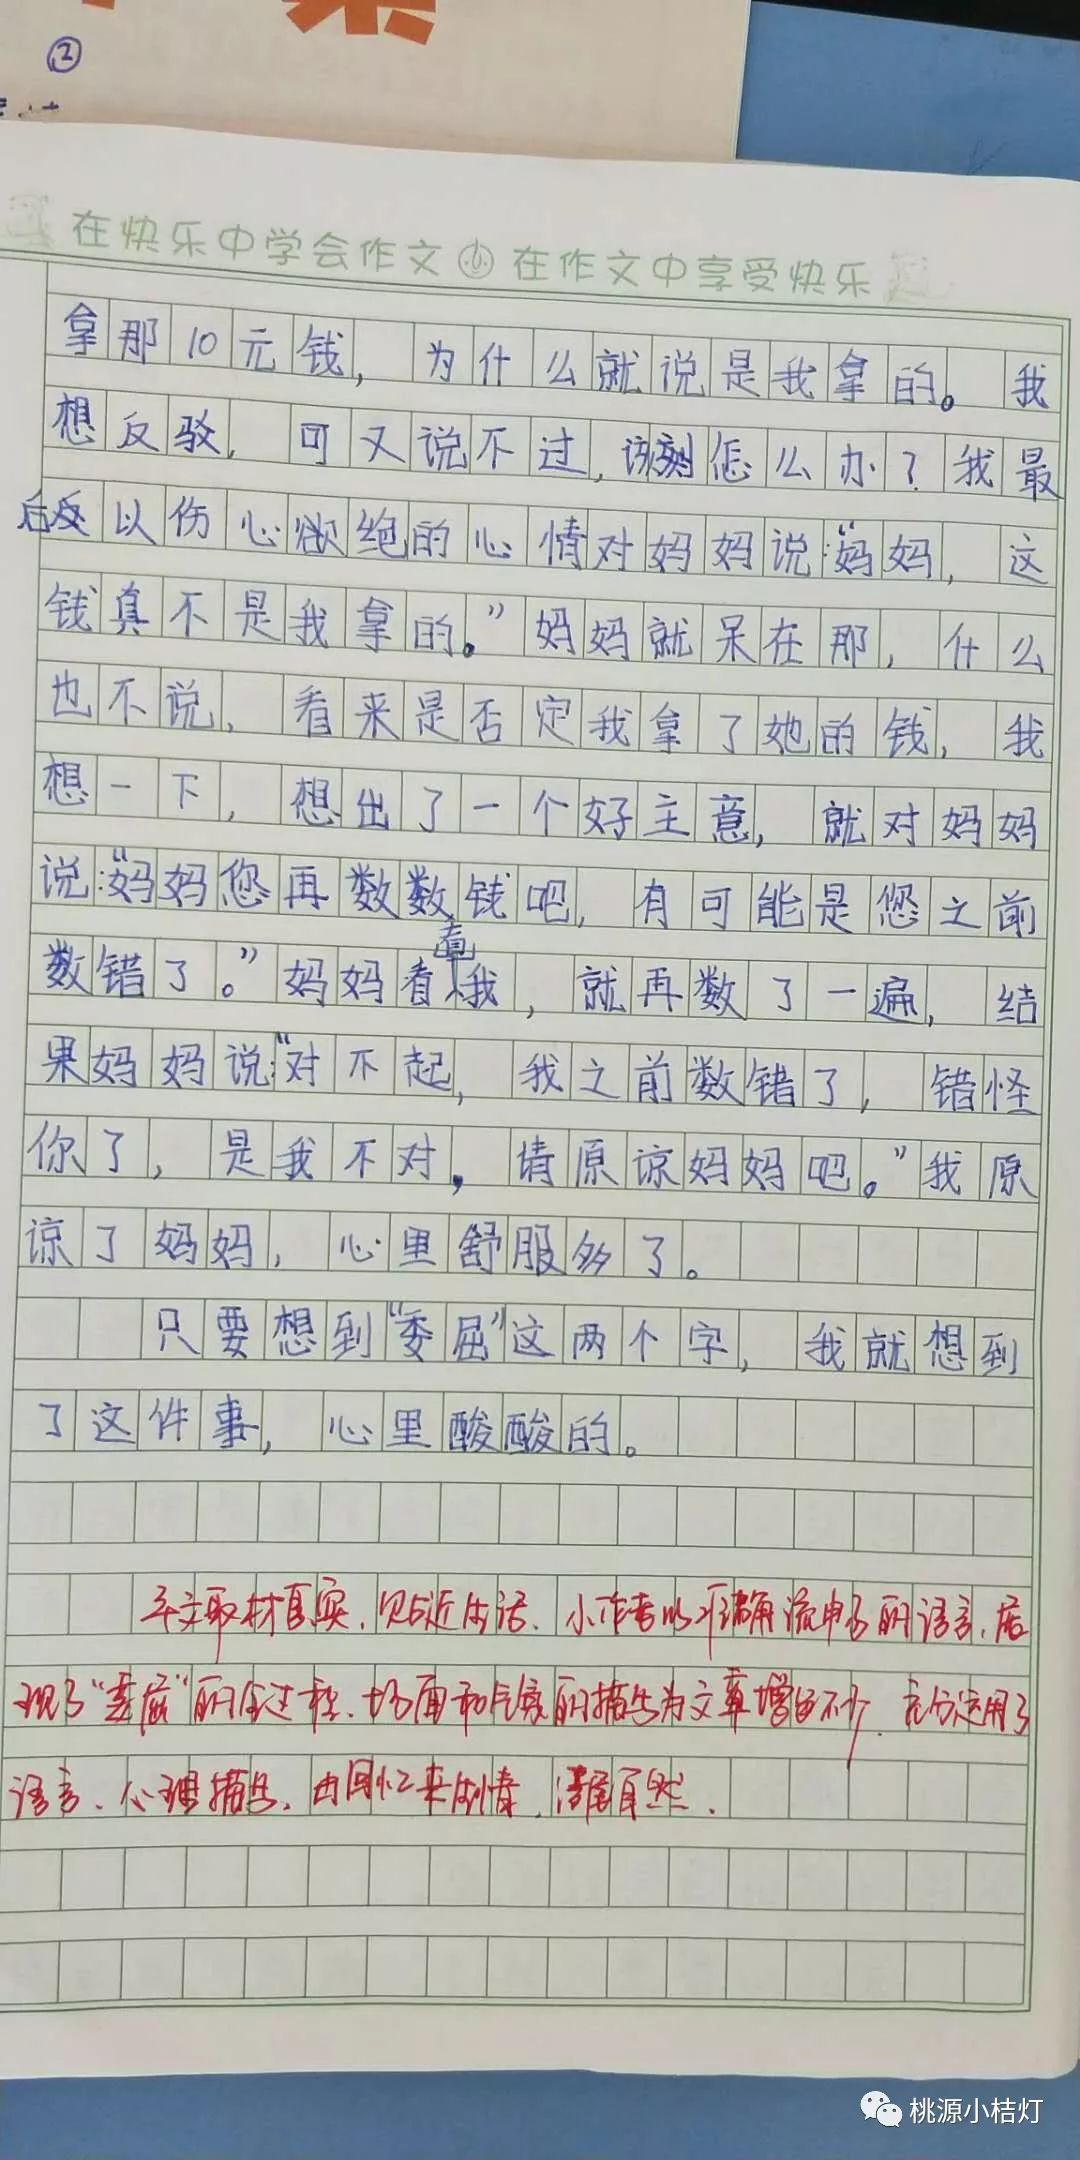 ②
在快乐中学会作文 在作文中享受快乐
拿那10元钱，为什么就说是我拿的。我
想反驳，可又说不过，该怎么办？我最
后以伤心欲绝的心情对妈妈说：“妈妈，这
钱真不是我拿的。”妈妈就呆在那，什么
也不说，看来是否定我拿了她的钱，我
想一下，想出了一个好主意，就对妈妈
说：“妈妈您再数数钱吧，有可能是您之前
数错了。”妈妈看看我，就再数了一遍，结
果妈妈说：“对不起，我之前数错了，错怪
你了，是我不对，请原谅妈妈吧。”我原
谅了妈妈，心里舒服多了。
只要想到“委屈”这两个字，我就想到
了这件事，心里酸酸的。
本文取材真实，贴近生活、小作者以准确流畅的语言，展
现了“委屈”的全过程、场面和的描写为文章增色不少、充分运用了
语言、心理描写，由回忆来，清晰自然．
桃源小桔灯